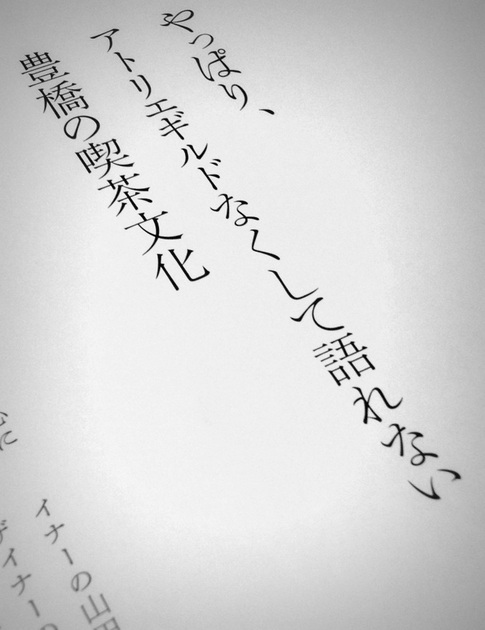 やっぱり、
アトリエギルドなくして語れない
豊橋の喫茶文化
イナーの山
イナーの
に